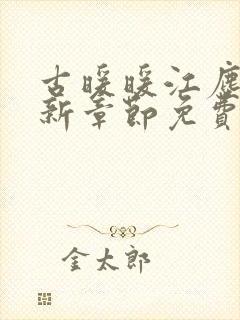 古暖暖江鹿
新章节免费
金太郎